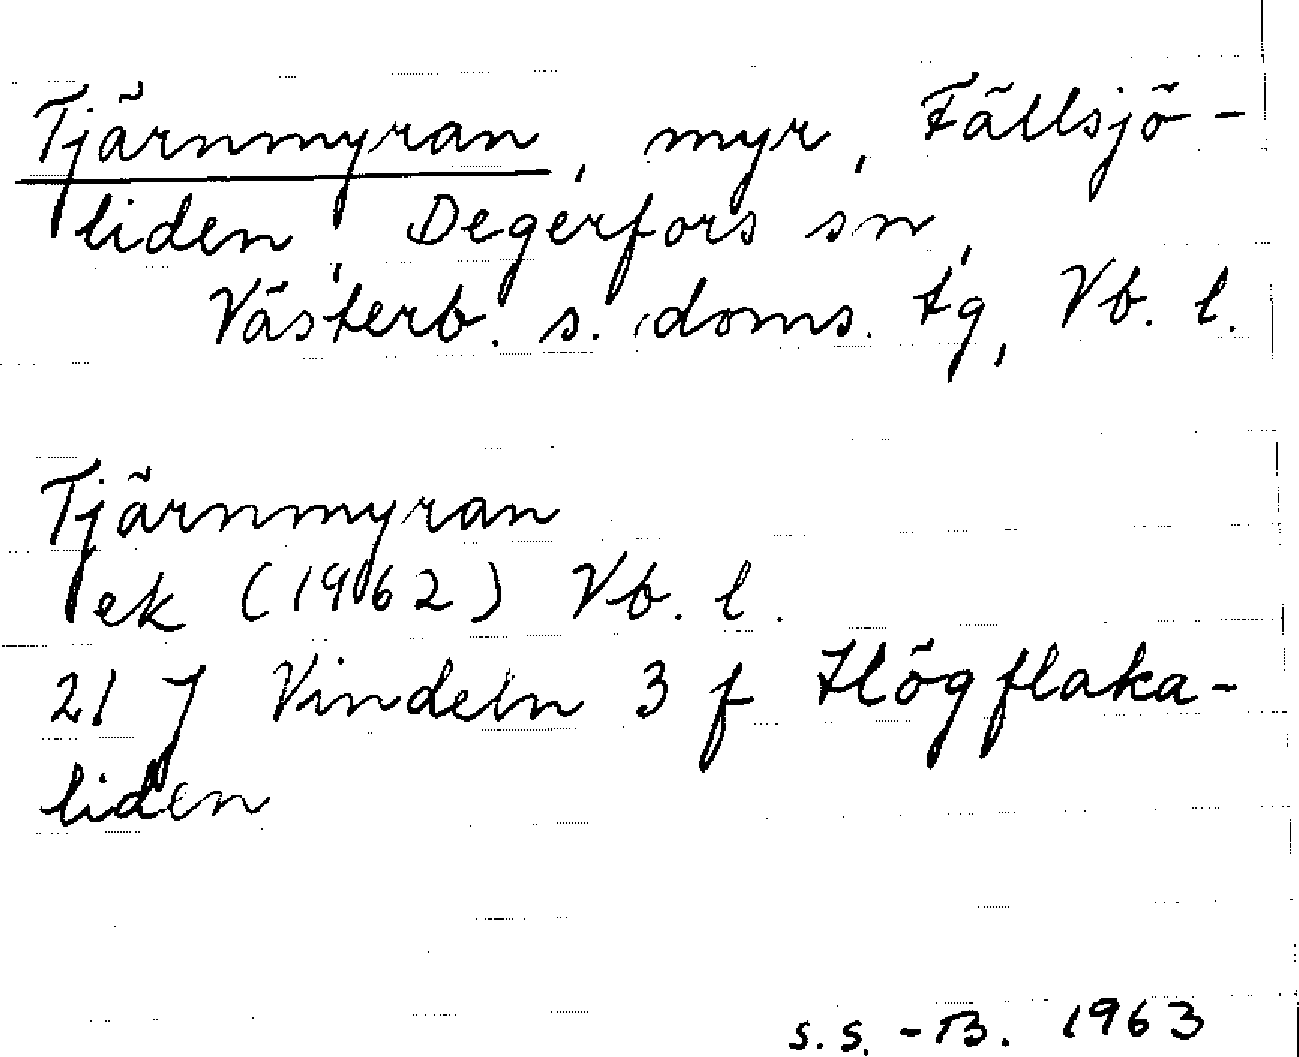 Tjärnmyran, myr, Fällsjö-
liden, Degerfors sn,
Västerb. s. doms. tg, Vb. l.
Tjärnmyran
ek (1962) Vb. l.
21 J Vindeln 3 f Högflaka-
liden
S. S. -B. 1963